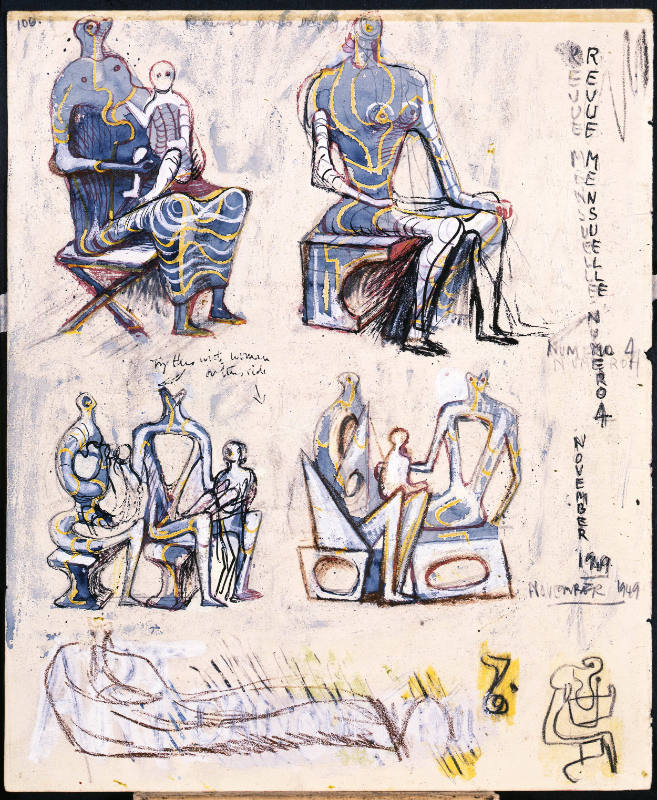 106.
REVUE MENSUELLE NUMERO 4
REVUE MENSUELLE
NUMERO 4
NUMERO 4
try this with woman
on this side
NOVEMBER
1949
NOVEMBER 1949